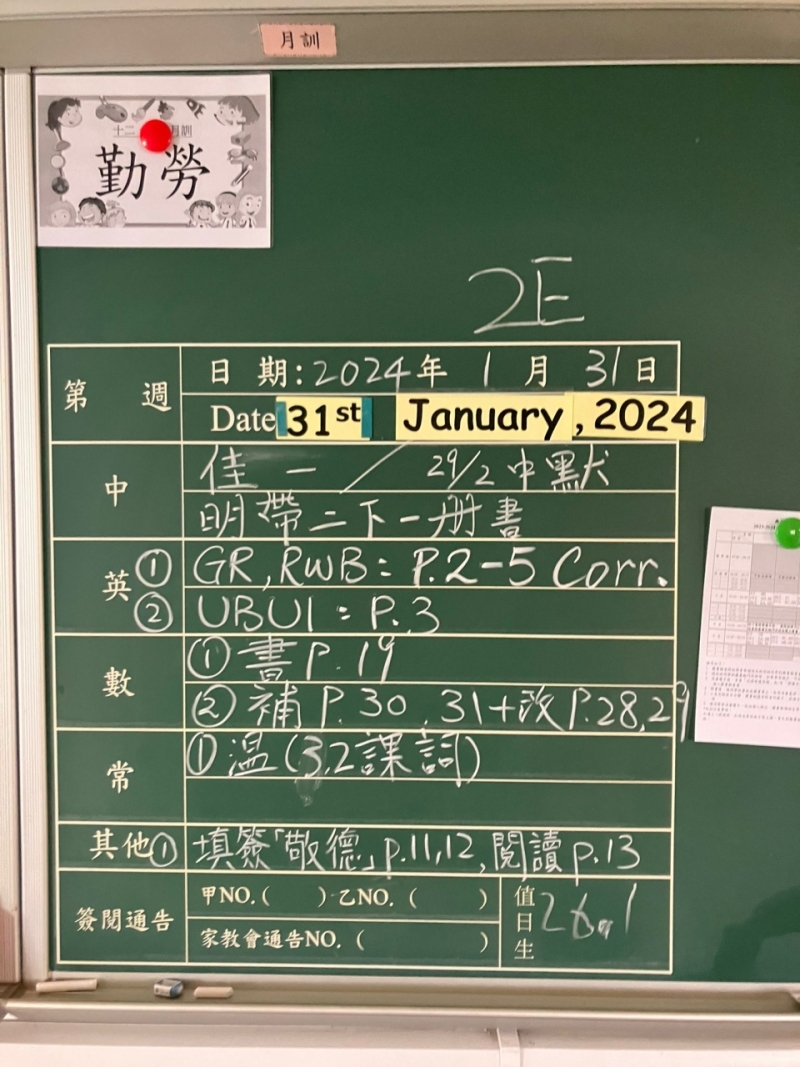 月訓
勤勞
2E
第 週
日 期:2024年 1月 31日
Date 31st January, 2024
中
佳一/ 29/2中默
明帶二下一册書
英
① GR, RWB: P.2-5 Corr.
② UBU1: P.3
數
①書P.19
②補P.30,31+改P.28,29
常
①温(3.2課詞)
其他① 填簽「敬德」p.11,12,閱讀p.13
簽閱通告
甲NO.( )·乙NO.( )
家教會通告NO.( )
值日生